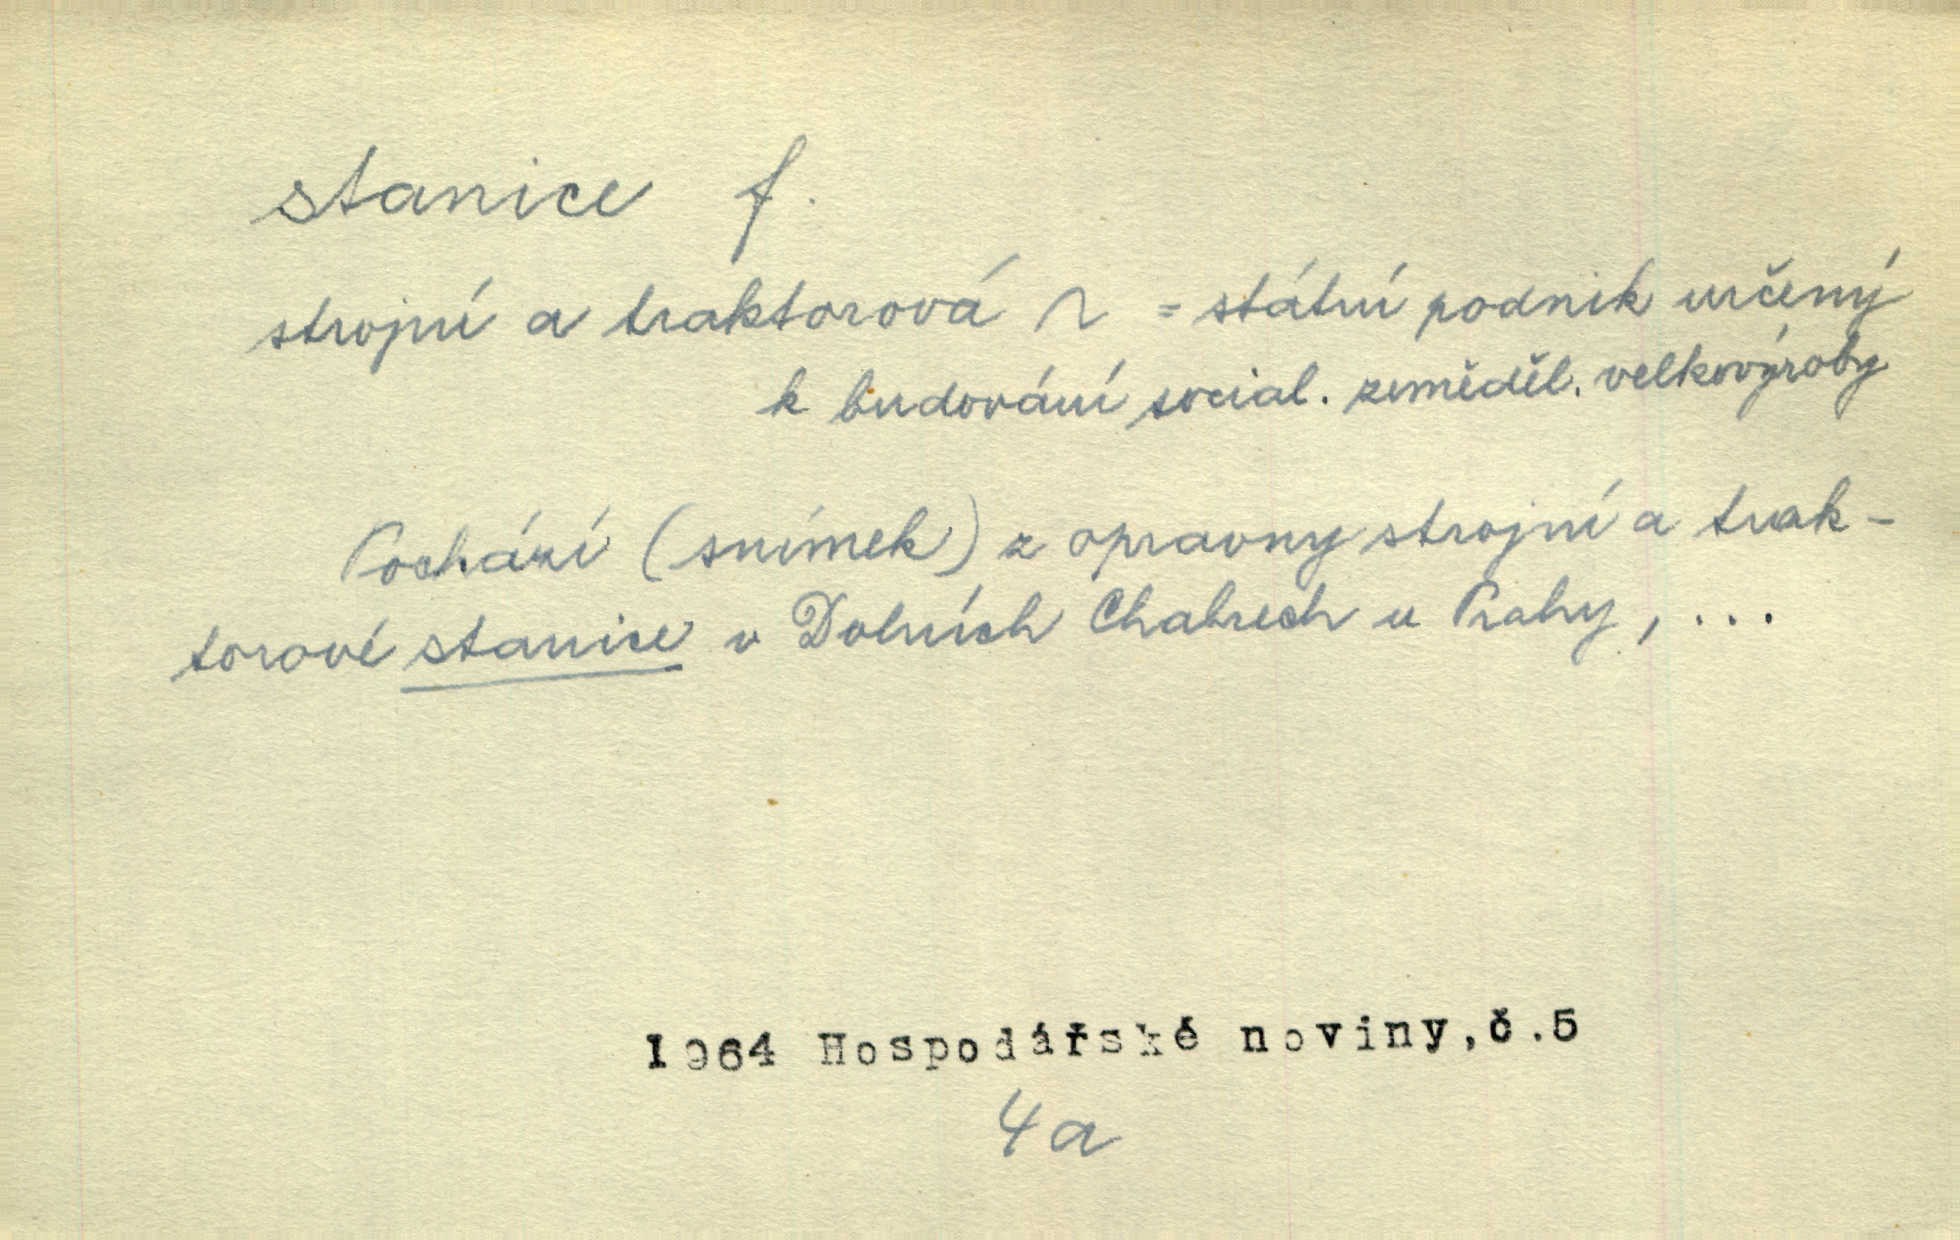 stanice f.
strojní a traktorová ~ = státní podnik určený
k budování social. zeměděl. velkovýroby
Pochází (snímek) z opravny strojní a trak-
torové stanice v Dolních Chabrech u Prahy, ...
1964 Hospodářské noviny,č.5
4a